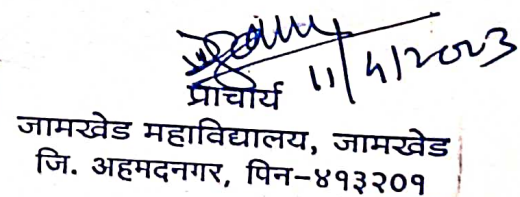 11/4/2023
प्राचार्य
जामखेड महाविद्यालय, जामखेड
जि. अहमदनगर, पिन-४१३२०१